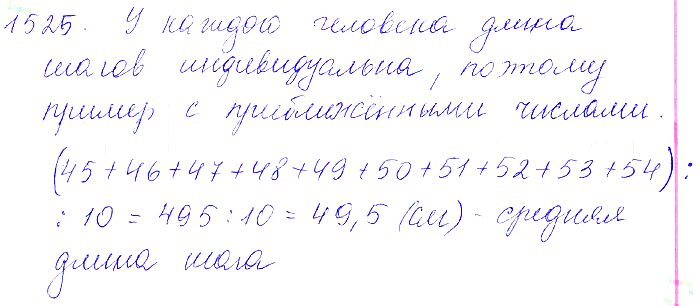 1525. У каждого человека длина
шагов индивидуальна, поэтому
пример с приближёнными числами.
(45+46+47+48+49+50+51+52+53+54):
:10 = 495:10 = 49,5 (см) - средняя
длина шага